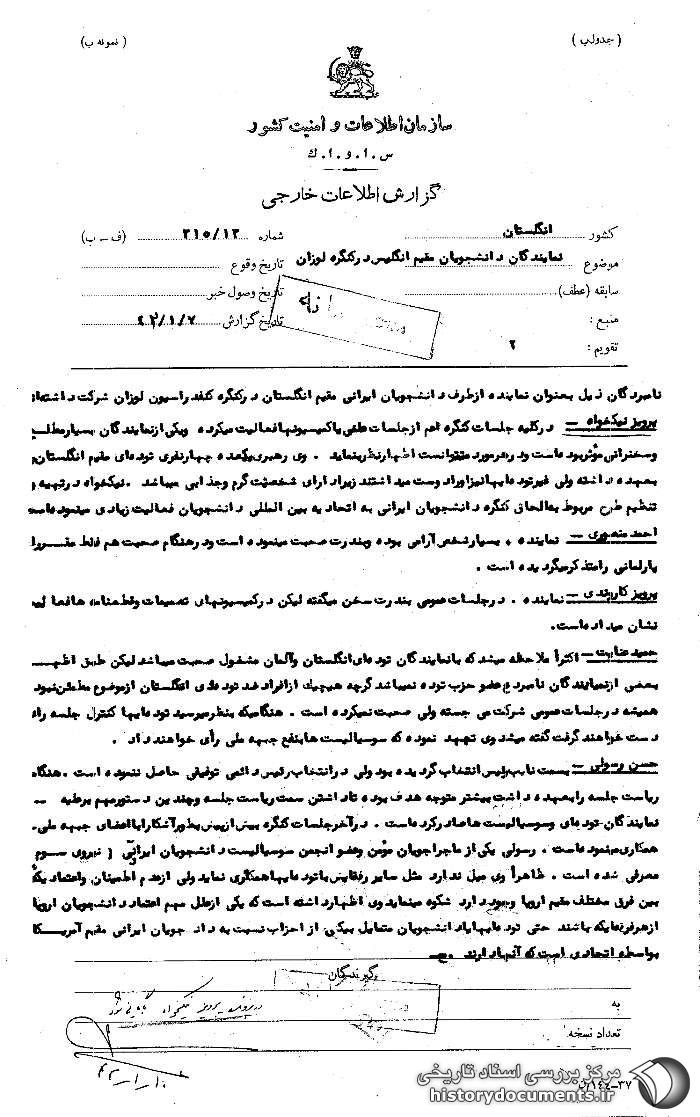 ( جدولب )
( نمونه ب )
سازمان اطلاعات و امنیت کشور
س . ا . و . ا . ك
گزارش اطلاعات خارجی
کشور انگلستان شماره ۳۱۵/۱۲ (ف – ب)
موضوع نمایندگان دانشجویان مقیم انگلیس در کنگره لوزان تاریخ وقوع
سابقه (عطف) تاریخ وصول خبر
منبع : تاریخ گزارش ۴۲/۱/۷
تقویم : ۲
نامبردگان ذیل بعنوان نماینده ازطرف دانشجویان ایرانی مقیم انگلستان در کنگره کنفدراسیون لوزان شرکت داشتهاند
پرویز نیکخواه – درکلیه جلسات کنگره اعم ازجلسات علنی یاکمیسیونها فعالیت میکرده ویکی ازنمایندگان بسیار مطلع
وسخنرانی موثربوده است ودرهرمورد میتوانست اظهارنظرنماید . وی رهبری یکعده چهارنفری توده ای مقیم انگلستان را
بعهده داشته ولی غیرتوده ایها نیزاورادوست میداشتند زیرادارای شخصیت گرم وجذابی میباشد . نیکخواه درتهیه و
تنظیم طرح مربوط به الحاق کنگره دانشجویان ایرانی به اتحادیه بین المللی دانشجویان فعالیت زیادی مینموده است
احمد منصوری – نماینده ، بسیار شخص آرامی بوده وبندرت صحبت مینموده است ودرهنگام صحبت هم فقط مقررات
پارلمانی رامتذکرمیگردیده است .
پرویز کاربندی – نماینده . درجلسات عمومی بندرت سخن میگفته لیکن درکمیسیونهای تصمیمات وقطعنامه ها فعالیت
نشان میداده است.
حمید عنایت – اکثراً ملاحظه میشد که بانمایندگان توده ای انگلستان وآلمان مشغول صحبت میباشد لیکن طبق اظهار
بعضی ازنمایندگان نامبرده عضو حزب توده نمیباشد گرچه هیچیک ازافراد ضد توده ای انگلستان ازموضوع مطمئن نبودند
همیشه درجلسات عمومی شرکت می جسته ولی صحبت نمیکرده است . هنگامیکه بنظرمیرسید توده ایها کنترل جلسه رادر
دست خواهند گرفت گفته میشد وی تعهد نموده که سوسیالیست هابنفع جبهه ملی رأی خواهند داد .
حسن رسولی – بسمت نایب رئیس انتخاب گردیده بود ولی درانتخاب رئیس دائمی توفیقی حاصل ننموده است . هنگامیکه
ریاست جلسه رابعهده داشت بیشتر متوجه هدف بوده تاداشتن سمت ریاست جلسه وچندین دستورمهم برعلیه –
نمایندگان توده ای وسوسیالیست هاصادرکرده است . درآخرجلسات کنگره بیش ازپیش بطورآشکارابااعضای جبهه ملی–
همکاری مینموده است . رسولی یکی ازماجراجویان مومن وعضو انجمن سوسیالیست دانشجویان ایرانی ( نیروی سوم )
معرفی شده است . ظاهراً وی میل ندارد مثل سایر رفقایش باتوده ایها همکاری نماید ولی ازعدم اطمینان واعتمادیکه
بین فرق مختلف مقیم اروپا وجوددارد شکوه مینماید وی اظهارداشته است که یکی ازعلل مهم اعتماد دانشجویان اروپا
ازهرفرقه ایکه باشند حتی توده ایها یادانشجویان متمایل بیکی از احزاب نسبت به دانشجویان ایرانی مقیم آمریکا
بواسطه اتحادی است که آنهادارند . ج–
گیرندگان
به
در پرونده پرویز نیکخواه بایگانی شود
تعداد نسخه :
۱۴۴-۳۷/ن
مرکز بررسی اسناد تاریخی
historydocuments.ir